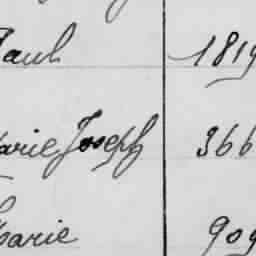 Paul 1819
Marie Joseph 366
Marie 909